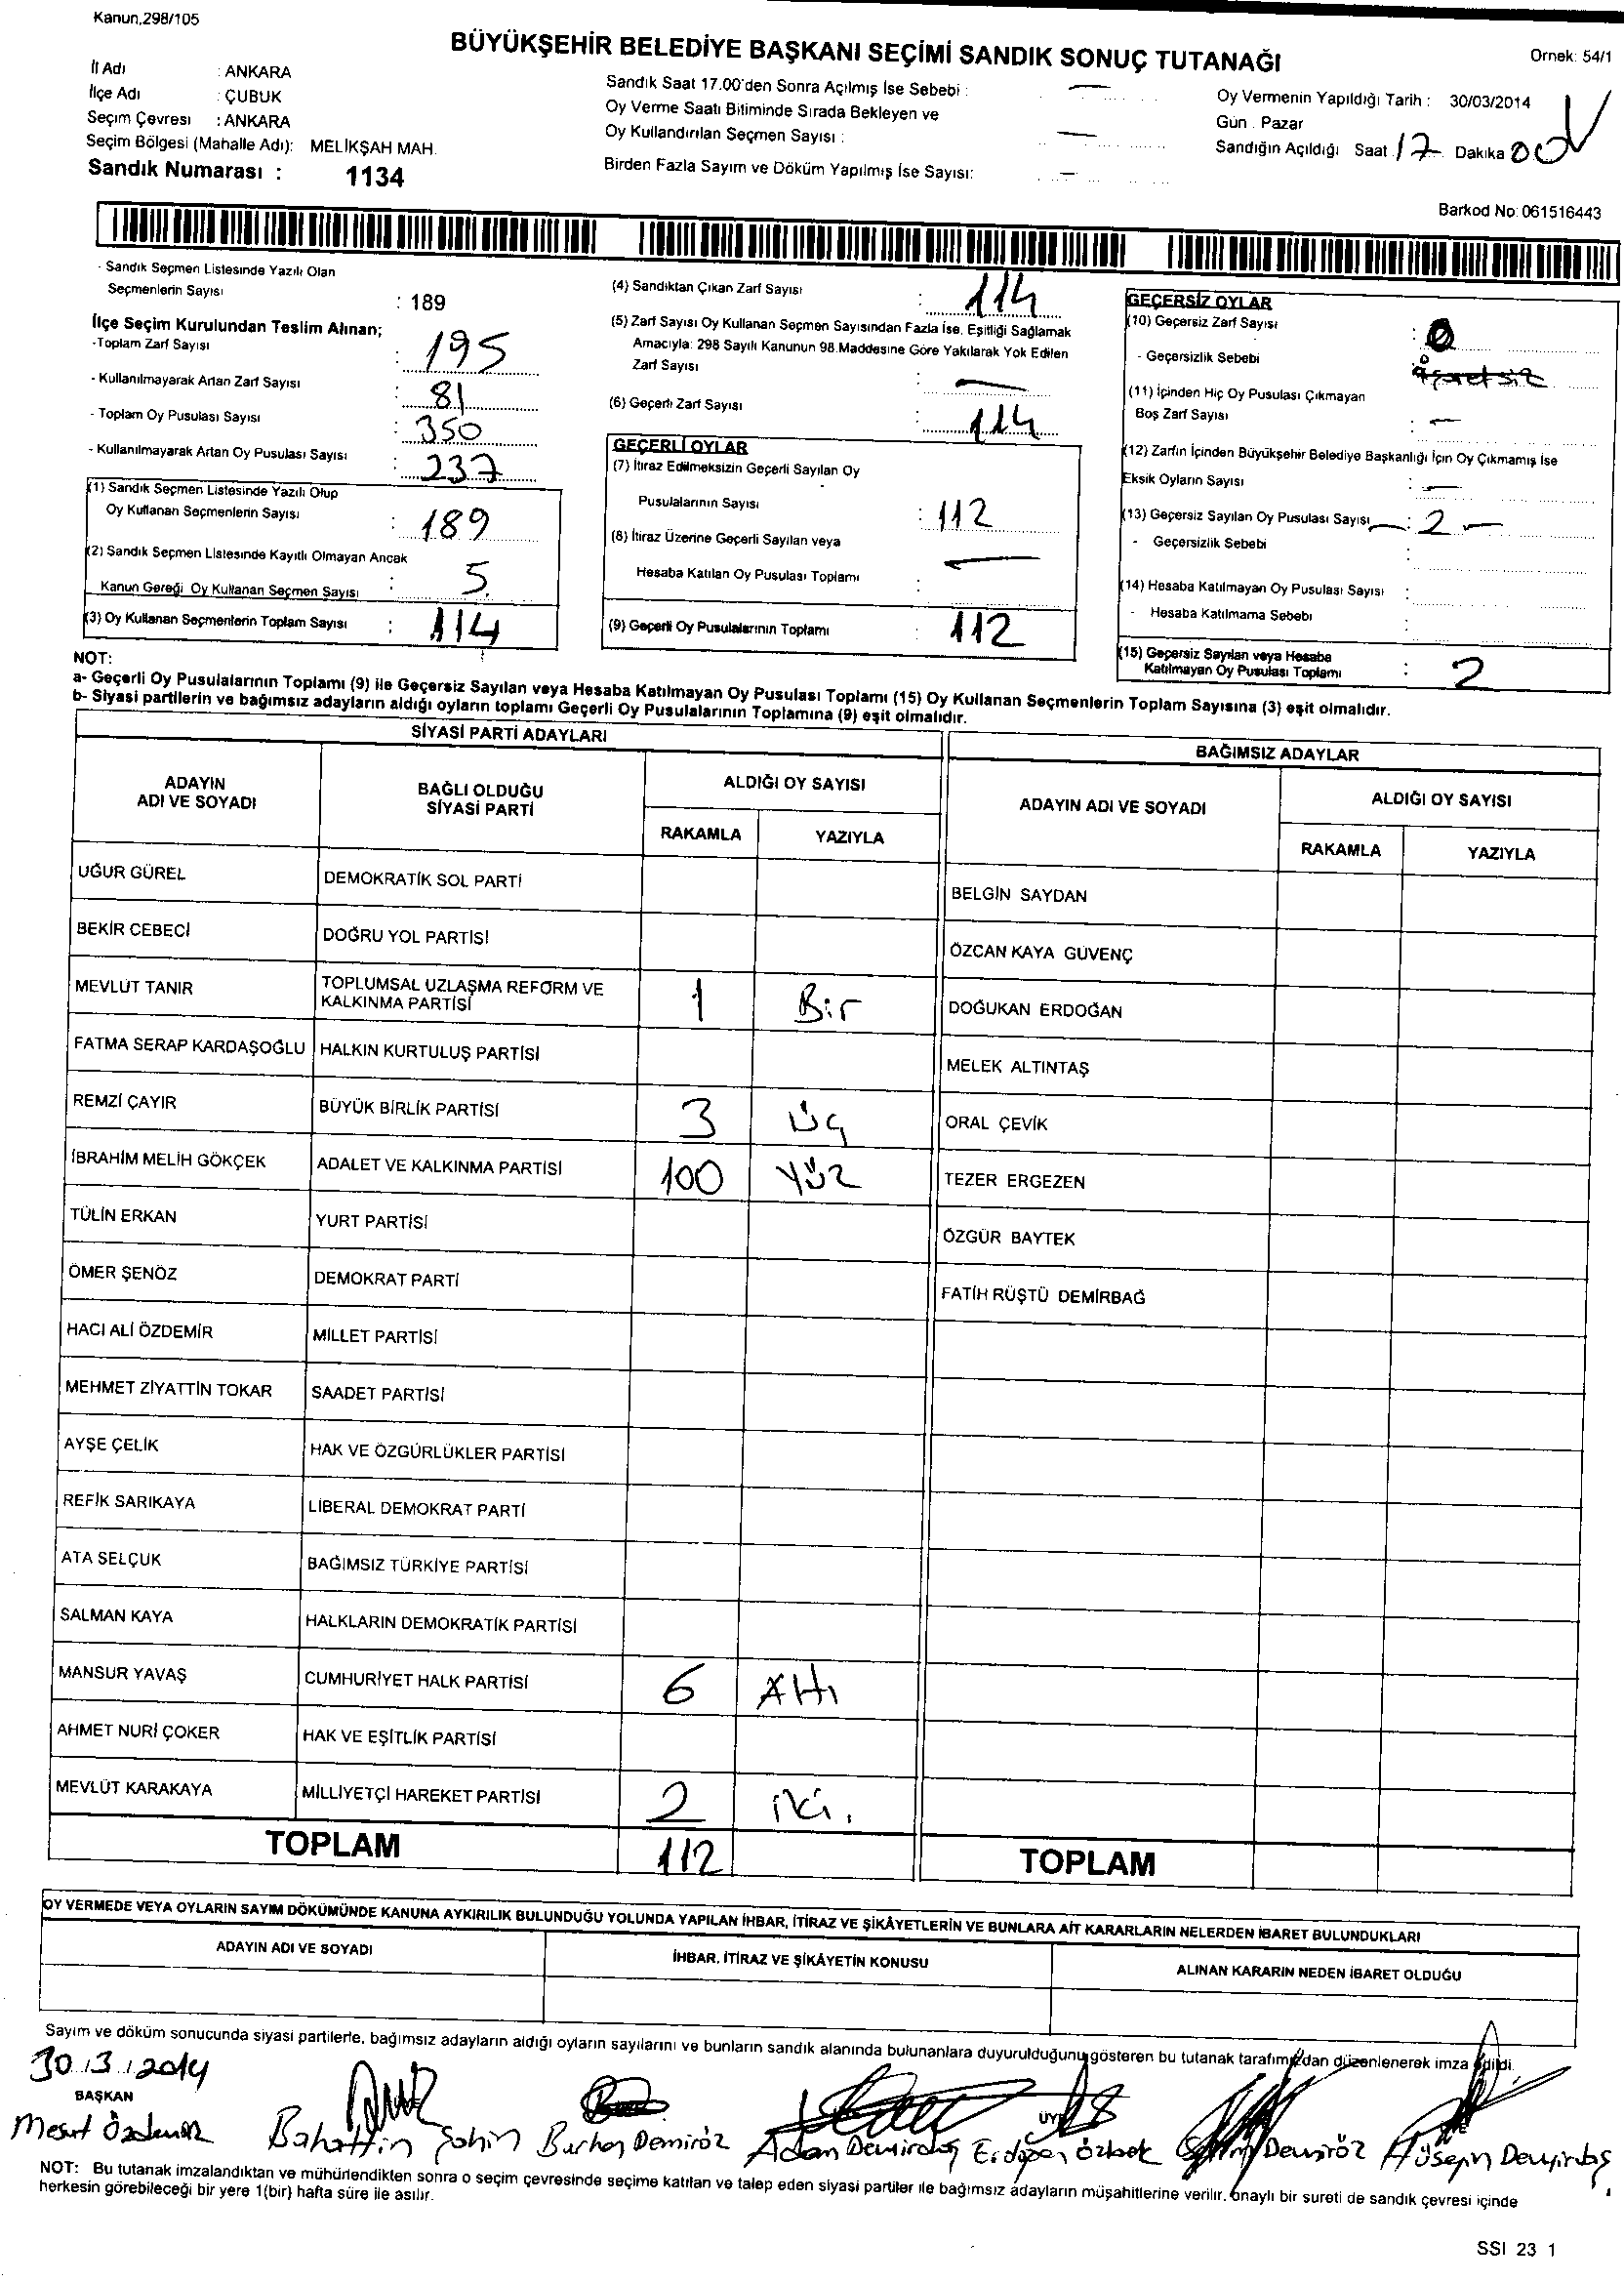 Kanun,298/105
BÜYÜKŞEHİR BELEDİYE BAŞKANI SEÇİMİ SANDIK SONUÇ TUTANAĞI
Ornek: 54/1
İl Adı : ANKARA
İlçe Adı : ÇUBUK
Seçim Çevresi : ANKARA
Seçim Bölgesi (Mahalle Adı): MELİKŞAH MAH.
Sandık Numarası : 1134
Sandık Saat 17.00'den Sonra Açılmış İse Sebebi : —
Oy Verme Saati Bitiminde Sırada Bekleyen ve
Oy Kullandırılan Seçmen Sayısı : —
Birden Fazla Sayım ve Döküm Yapılmış İse Sayısı: —
Oy Vermenin Yapıldığı Tarih : 30/03/2014
Gün . Pazar
Sandığın Açıldığı Saat 17 Dakika 00
Barkod No: 061516443
- Sandık Seçmen Listesinde Yazılı Olan
Seçmenlerin Sayısı : 189
İlçe Seçim Kurulundan Teslim Alınan;
-Toplam Zarf Sayısı : 195
- Kullanılmayarak Artan Zarf Sayısı : 81
- Toplam Oy Pusulası Sayısı : 350
- Kullanılmayarak Artan Oy Pusulası Sayısı : 237
(1) Sandık Seçmen Listesinde Yazılı Olup
Oy Kullanan Seçmenlerin Sayısı : 189
(2) Sandık Seçmen Listesinde Kayıtlı Olmayan Ancak
Kanun Gereği Oy Kullanan Seçmen Sayısı : 5.
(3) Oy Kullanan Seçmenlerin Toplam Sayısı : 114
(4) Sandıktan Çıkan Zarf Sayısı : 114
(5) Zarf Sayısı Oy Kullanan Seçmen Sayısından Fazla İse, Eşitliği Sağlamak
Amacıyla: 298 Sayılı Kanunun 98.Maddesine Göre Yakılarak Yok Edilen
Zarf Sayısı : —
(6) Geçerli Zarf Sayısı : 114
GEÇERLİ OYLAR
(7) İtiraz Edilmeksizin Geçerli Sayılan Oy
Pusulalarının Sayısı : 112
(8) İtiraz Üzerine Geçerli Sayılan veya
Hesaba Katılan Oy Pusulası Toplamı : —
(9) Geçerli Oy Pusulalarının Toplamı : 112
GEÇERSİZ OYLAR
(10) Geçersiz Zarf Sayısı : 0
- Geçersizlik Sebebi :
(11) İçinden Hiç Oy Pusulası Çıkmayan
Boş Zarf Sayısı : —
(12) Zarfın İçinden Büyükşehir Belediye Başkanlığı İçin Oy Çıkmamış İse
Eksik Oyların Sayısı : —
(13) Geçersiz Sayılan Oy Pusulası Sayısı — : 2 —
- Geçersizlik Sebebi :
(14) Hesaba Katılmayan Oy Pusulası Sayısı :
- Hesaba Katılmama Sebebi :
(15) Geçersiz Sayılan veya Hesaba
Katılmayan Oy Pusulası Toplamı : 2
NOT:
a- Geçerli Oy Pusulalarının Toplamı (9) ile Geçersiz Sayılan veya Hesaba Katılmayan Oy Pusulası Toplamı (15) Oy Kullanan Seçmenlerin Toplam Sayısına (3) eşit olmalıdır.
b- Siyasi partilerin ve bağımsız adayların aldığı oyların toplamı Geçerli Oy Pusulalarının Toplamına (9) eşit olmalıdır.
SİYASİ PARTİ ADAYLARI
ADAYIN ADI VE SOYADI
BAĞLI OLDUĞU SİYASİ PARTİ
ALDIĞI OY SAYISI
RAKAMLA YAZIYLA
UĞUR GÜREL DEMOKRATİK SOL PARTİ
BEKİR CEBECİ DOĞRU YOL PARTİSİ
MEVLÜT TANIR TOPLUMSAL UZLAŞMA REFORM VE KALKINMA PARTİSİ 1 Bir
FATMA SERAP KARDAŞOĞLU HALKIN KURTULUŞ PARTİSİ
REMZİ ÇAYIR BÜYÜK BİRLİK PARTİSİ 3 Üç
İBRAHİM MELİH GÖKÇEK ADALET VE KALKINMA PARTİSİ 100 YÜZ
TÜLİN ERKAN YURT PARTİSİ
ÖMER ŞENÖZ DEMOKRAT PARTİ
HACI ALİ ÖZDEMİR MİLLET PARTİSİ
MEHMET ZİYATTİN TOKAR SAADET PARTİSİ
AYŞE ÇELİK HAK VE ÖZGÜRLÜKLER PARTİSİ
REFİK SARIKAYA LİBERAL DEMOKRAT PARTİ
ATA SELÇUK BAĞIMSIZ TÜRKİYE PARTİSİ
SALMAN KAYA HALKLARIN DEMOKRATİK PARTİSİ
MANSUR YAVAŞ CUMHURİYET HALK PARTİSİ 6 Altı
AHMET NURİ ÇOKER HAK VE EŞİTLİK PARTİSİ
MEVLÜT KARAKAYA MİLLİYETÇİ HAREKET PARTİSİ 2 iki.
TOPLAM 112
BAĞIMSIZ ADAYLAR
ADAYIN ADI VE SOYADI
ALDIĞI OY SAYISI
RAKAMLA YAZIYLA
BELGİN SAYDAN
ÖZCAN KAYA GÜVENÇ
DOĞUKAN ERDOĞAN
MELEK ALTINTAŞ
ORAL ÇEVİK
TEZER ERGEZEN
ÖZGÜR BAYTEK
FATİH RÜŞTÜ DEMİRBAĞ
TOPLAM
OY VERMEDE VEYA OYLARIN SAYIM DÖKÜMÜNDE KANUNA AYKIRILIK BULUNDUĞU YOLUNDA YAPILAN İHBAR, İTİRAZ VE ŞİKÂYETLERİN VE BUNLARA AİT KARARLARIN NELERDEN İBARET BULUNDUKLARI
ADAYIN ADI VE SOYADI İHBAR, İTİRAZ VE ŞİKÂYETİN KONUSU ALINAN KARARIN NEDEN İBARET OLDUĞU
Sayım ve döküm sonucunda siyasi partilerle, bağımsız adayların aldığı oyların sayılarını ve bunların sandık alanında bulunanlara duyurulduğunu gösteren bu tutanak tarafımızdan düzenlenerek imza edildi.
30.3.2014
BAŞKAN ÜYE
Mesut Özdemir Bahattin Şahin Burhan Demiröz Adem Demirdaş Erdoğan Özbek Demiröz Hüseyin Demirdaş
NOT: Bu tutanak imzalandıktan ve mühürlendikten sonra o seçim çevresinde seçime katılan ve talep eden siyasi partiler ile bağımsız adayların müşahitlerine verilir, onaylı bir sureti de sandık çevresi içinde
herkesin görebileceği bir yere 1(bir) hafta süre ile asılır.
SSI 23 1